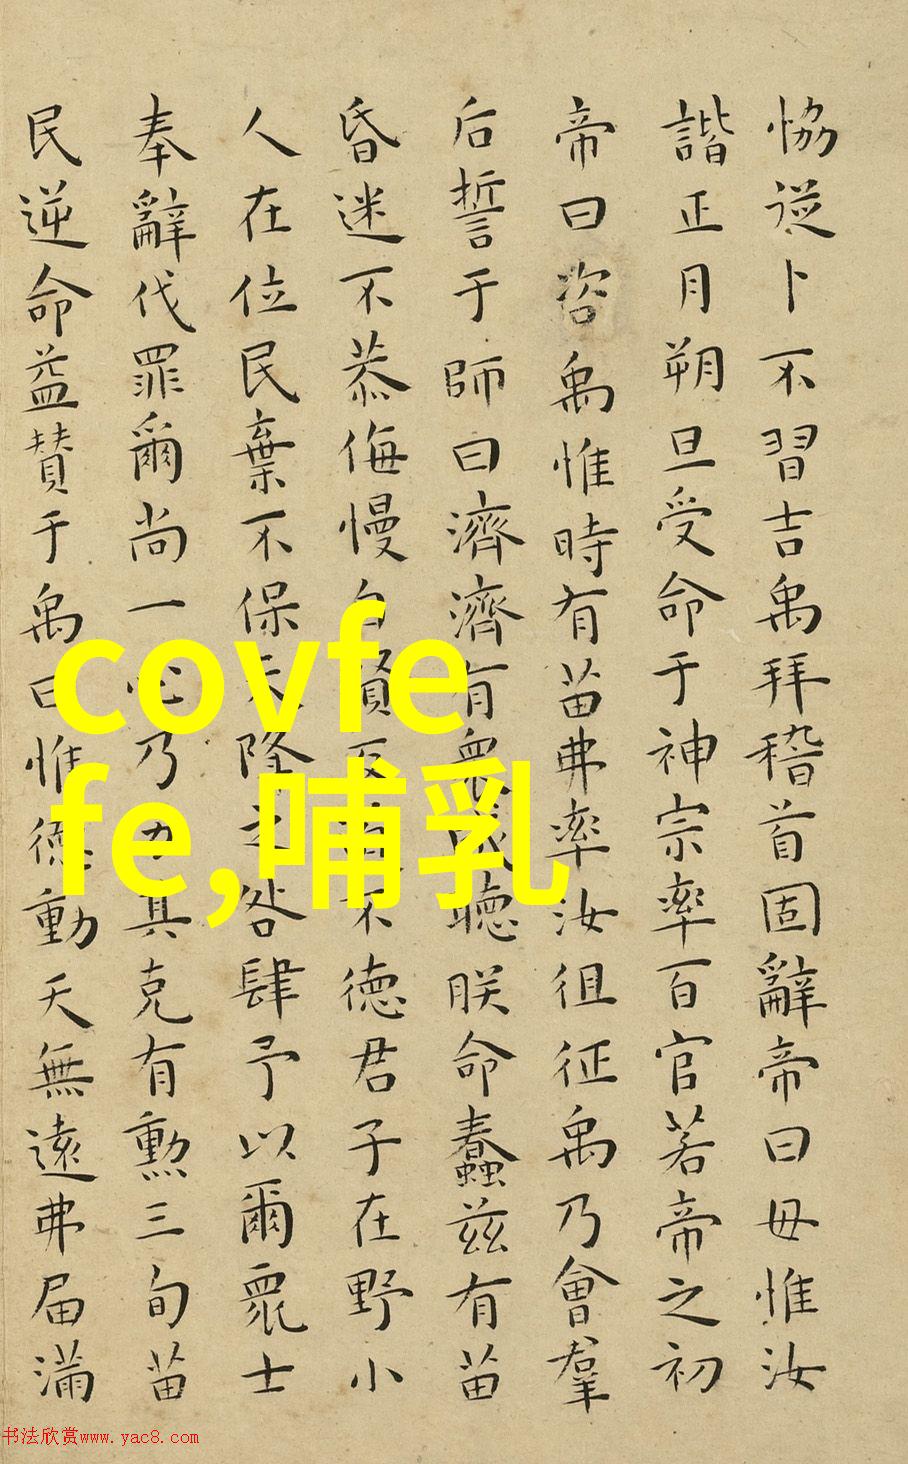 恊從卜不習吉禹拜稽首固辭帝曰毋惟汝
諧正月朔旦受命于神宗率百官若帝之初
帝曰咨禹惟時有苗弗率汝徂征禹乃會羣
后誓于師曰濟濟有衆咸聽朕命蠢兹有苗
昏迷不恭侮慢自賢反道不德君子在野小
人在位民棄不保天降之咎肆予以爾衆士
奉辭伐罪爾尚一心乃力其克有勲三旬苗
民逆命益賛于禹曰惟德動天無遠弗届滿
covfe
fe,哺乳
书法欣赏www.yac8.com